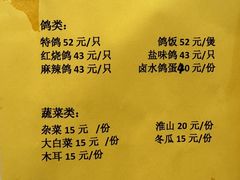 鸽类：
特鸽 52 元/只 鸽饭 52 元/煲
红烧鸽 43 元/只 盐味鸽 43 元/只
麻辣鸽 43 元/只 卤水鸽蛋 40 元/份
蔬菜类：
杂菜 15 元 /份 淮山 20 元/份
大白菜 15 元 /份 冬瓜 15 元/份
木耳 15 元 /份